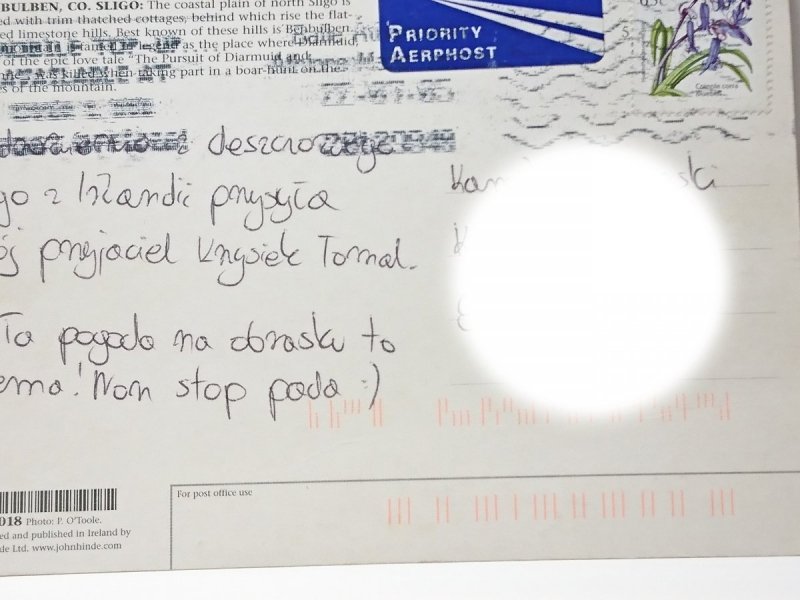 BULBEN, CO. SLIGO: The coastal plain of north Sligo is
ed with trim thatched cottages, behind which rise the flat-
ed limestone hills. Best known of these hills is Benbulben
as the place where Diarmuid,
of the epic love tale "The Pursuit of Diarmuid and
was killed when taking part in a boar-hunt on the
es of the mountain.
PRIORITY
AERPHOST
deszczowego
go z Irlandii przysyła
ój przyjaciel Krzysiek Tomal.
Ta pogoda na obrasku to
ema! Non stop pada :)
ski
For post office use
018 Photo: P. O'Toole.
ed and published in Ireland by
de Ltd. www.johnhinde.com